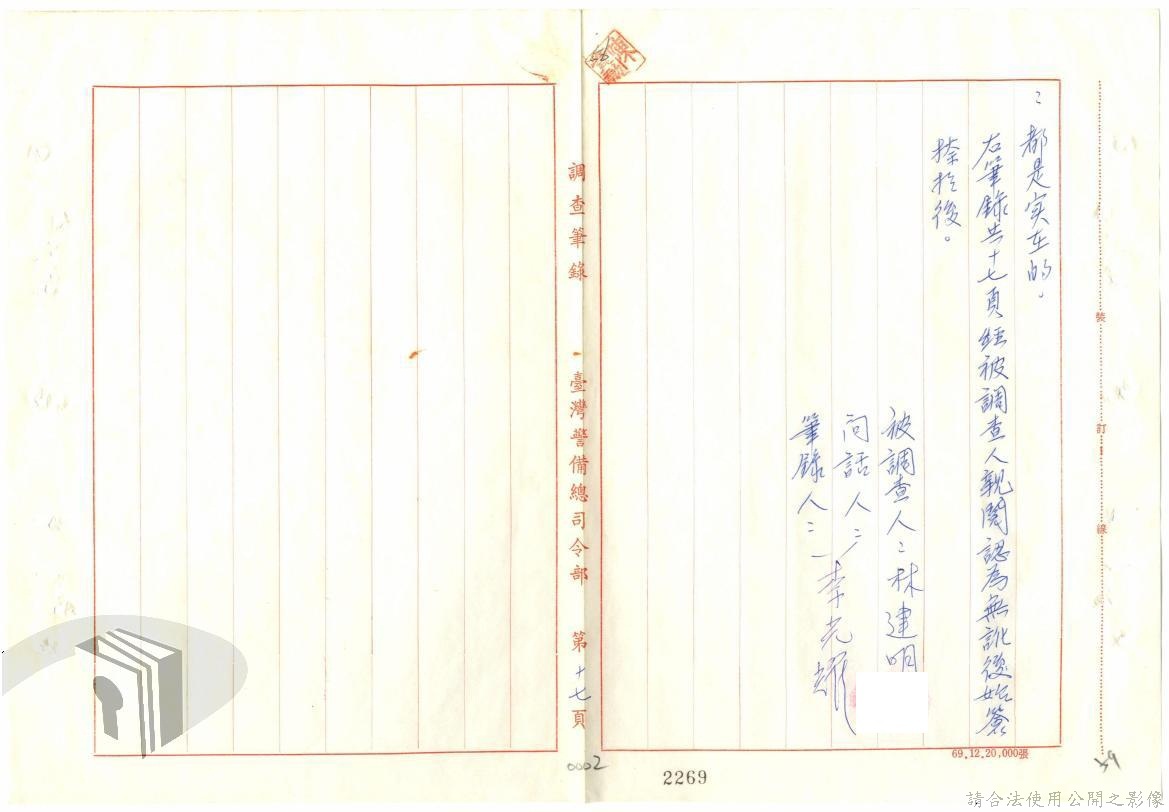 ：都是实在的。
右筆錄共十七頁經被調查人親閱認為無訛後始簽
捺於後。
被調查人：林建明
問話人：
筆錄人：李光耀
裝訂線
調查筆錄
臺灣警備總司令部
第十七頁
69.12.20,000張
0002
2269
59
請合法使用公開之影像